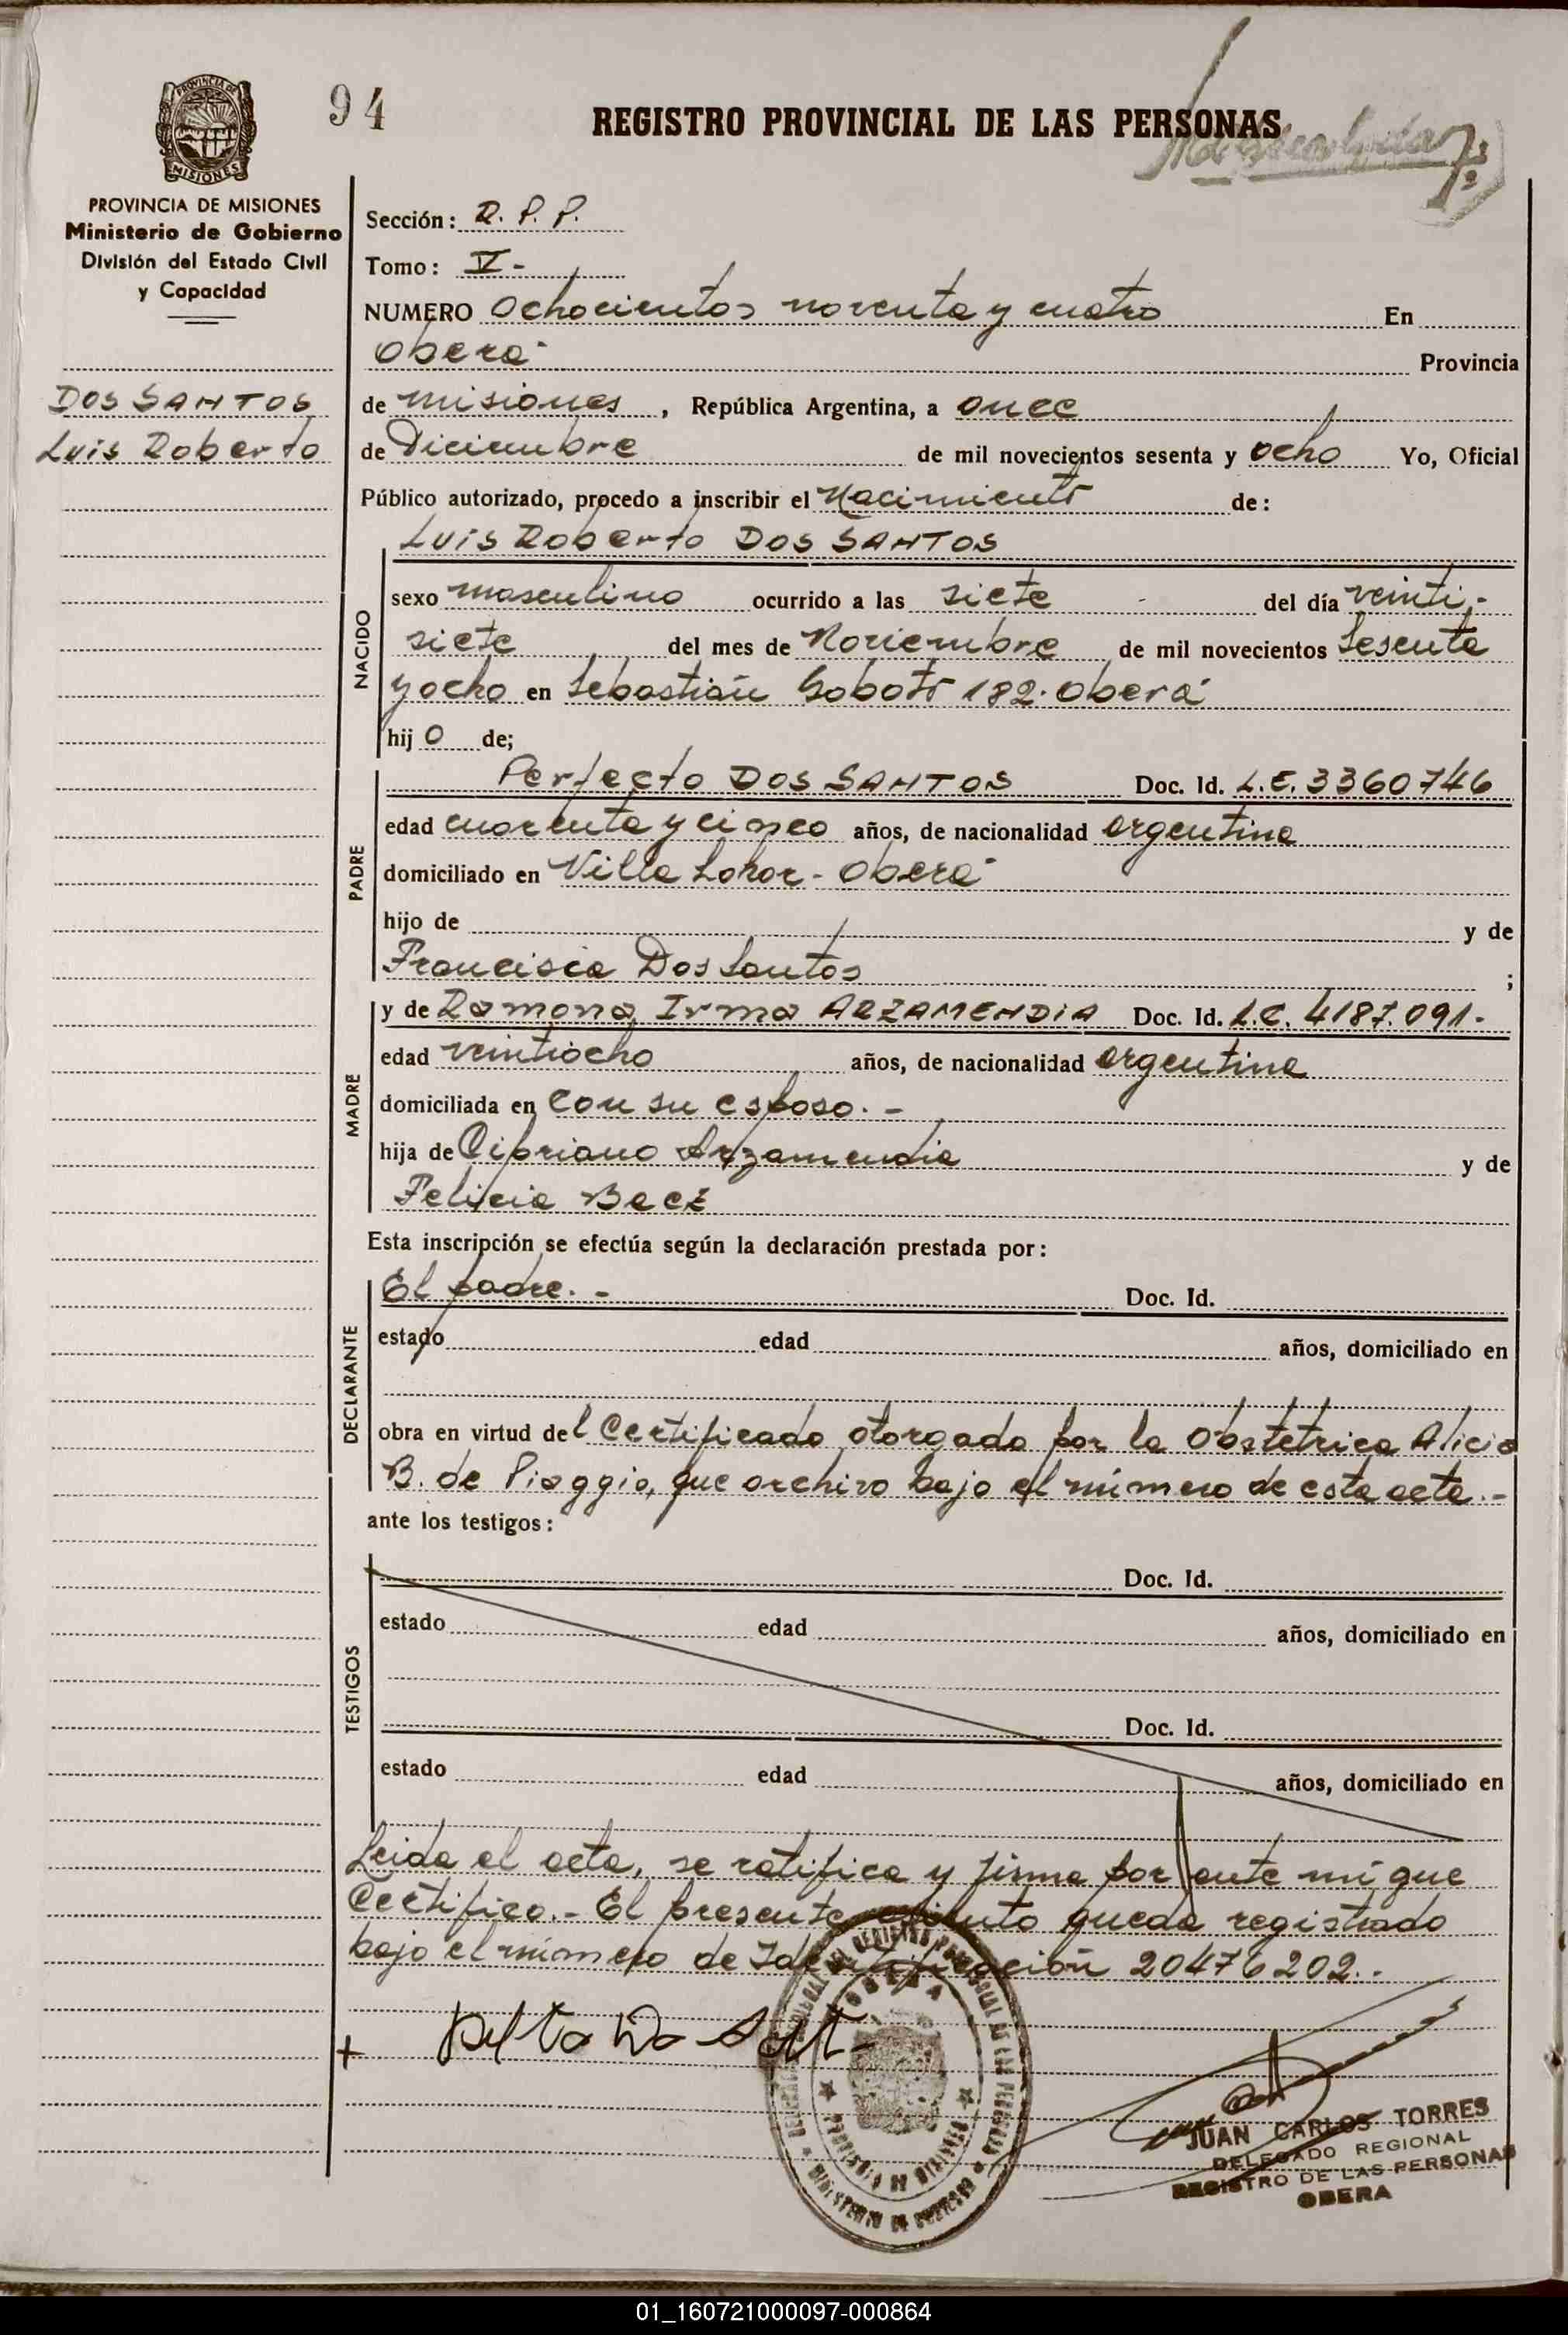 94
REGISTRO PROVINCIAL DE LAS PERSONAS
PROVINCIA DE MISIONES
MISIONES
PROVINCIA DE MISIONES
Ministerio de Gobierno
División del Estado Civil
y Capacidad
DOS SANTOS
Luis Roberto
Sección: R. P. P.
Tomo: V -
NUMERO Ochocientos noventa y cuatro En
Oberá Provincia
de Misiones, República Argentina, a once
de Diciembre de mil novecientos sesenta y ocho Yo, Oficial
Público autorizado, procedo a inscribir el Nacimiento de:
Luis Roberto DOS SANTOS
NACIDO
sexo masculino ocurrido a las siete del día veinti-
siete del mes de Noviembre de mil novecientos sesenta
y ocho en Sebastián Gaboto 182. Oberá
hij o de;
PADRE
Perfecto DOS SANTOS Doc. Id. L.E. 3360746
edad cuarenta y cinco años, de nacionalidad argentina
domiciliado en Villa - Oberá
hijo de y de
Francisca Dos Santos ;
MADRE
y de Ramona Irma ARZAMENDIA Doc. Id. L.C. 4187.091.-
edad veintiocho años, de nacionalidad argentina
domiciliada en con su esposo. -
hija de Cipriano Arzamendia y de
Felicia Baez
Esta inscripción se efectúa según la declaración prestada por:
DECLARANTE
El padre. - Doc. Id.
estado edad años, domiciliado en
obra en virtud del Certificado otorgado por la Obstetrica Alicia
B. de Piaggio, que archivo bajo el número de esta acta.-
ante los testigos:
TESTIGOS
Doc. Id.
estado edad años, domiciliado en
Doc. Id.
estado edad años, domiciliado en
Leida el acta, se ratifica y firma por ante mí que
Certifico.- El presente asiento queda registrado
bajo el número de Identificación 20476202.-
JUAN CARLOS TORRES
DELEGADO REGIONAL
REGISTRO DE LAS PERSONAS
OBERA
01_160721000097-000864